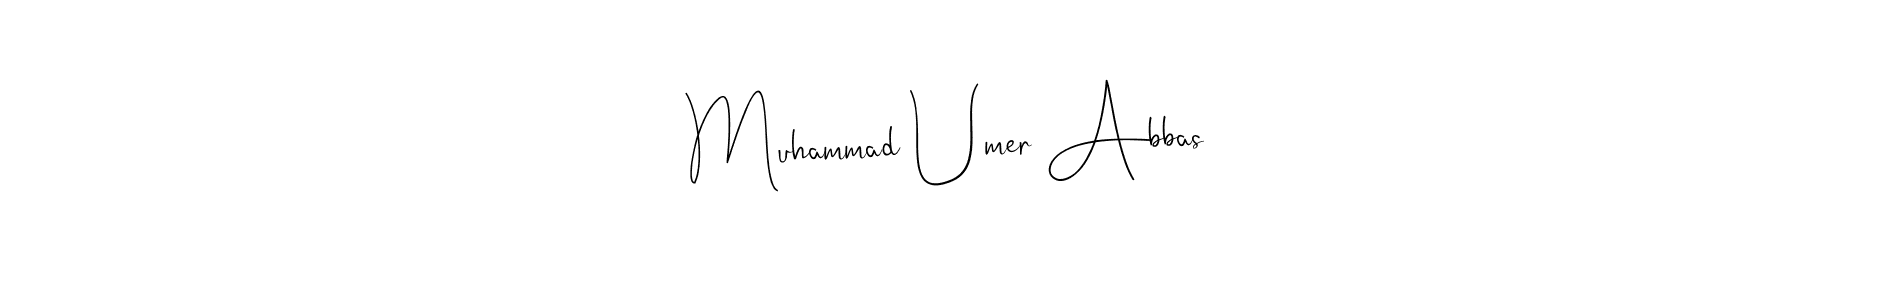 Muhammad Umer Abbas